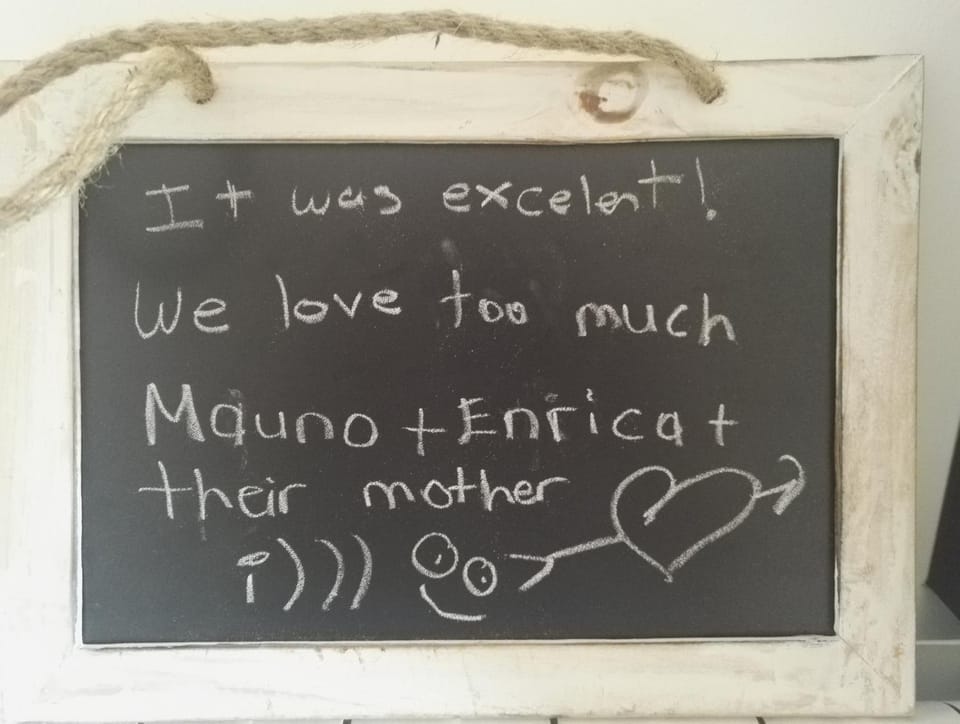 It was excelent!
We love too much
Mauno + Enrica +
their mother
i)))